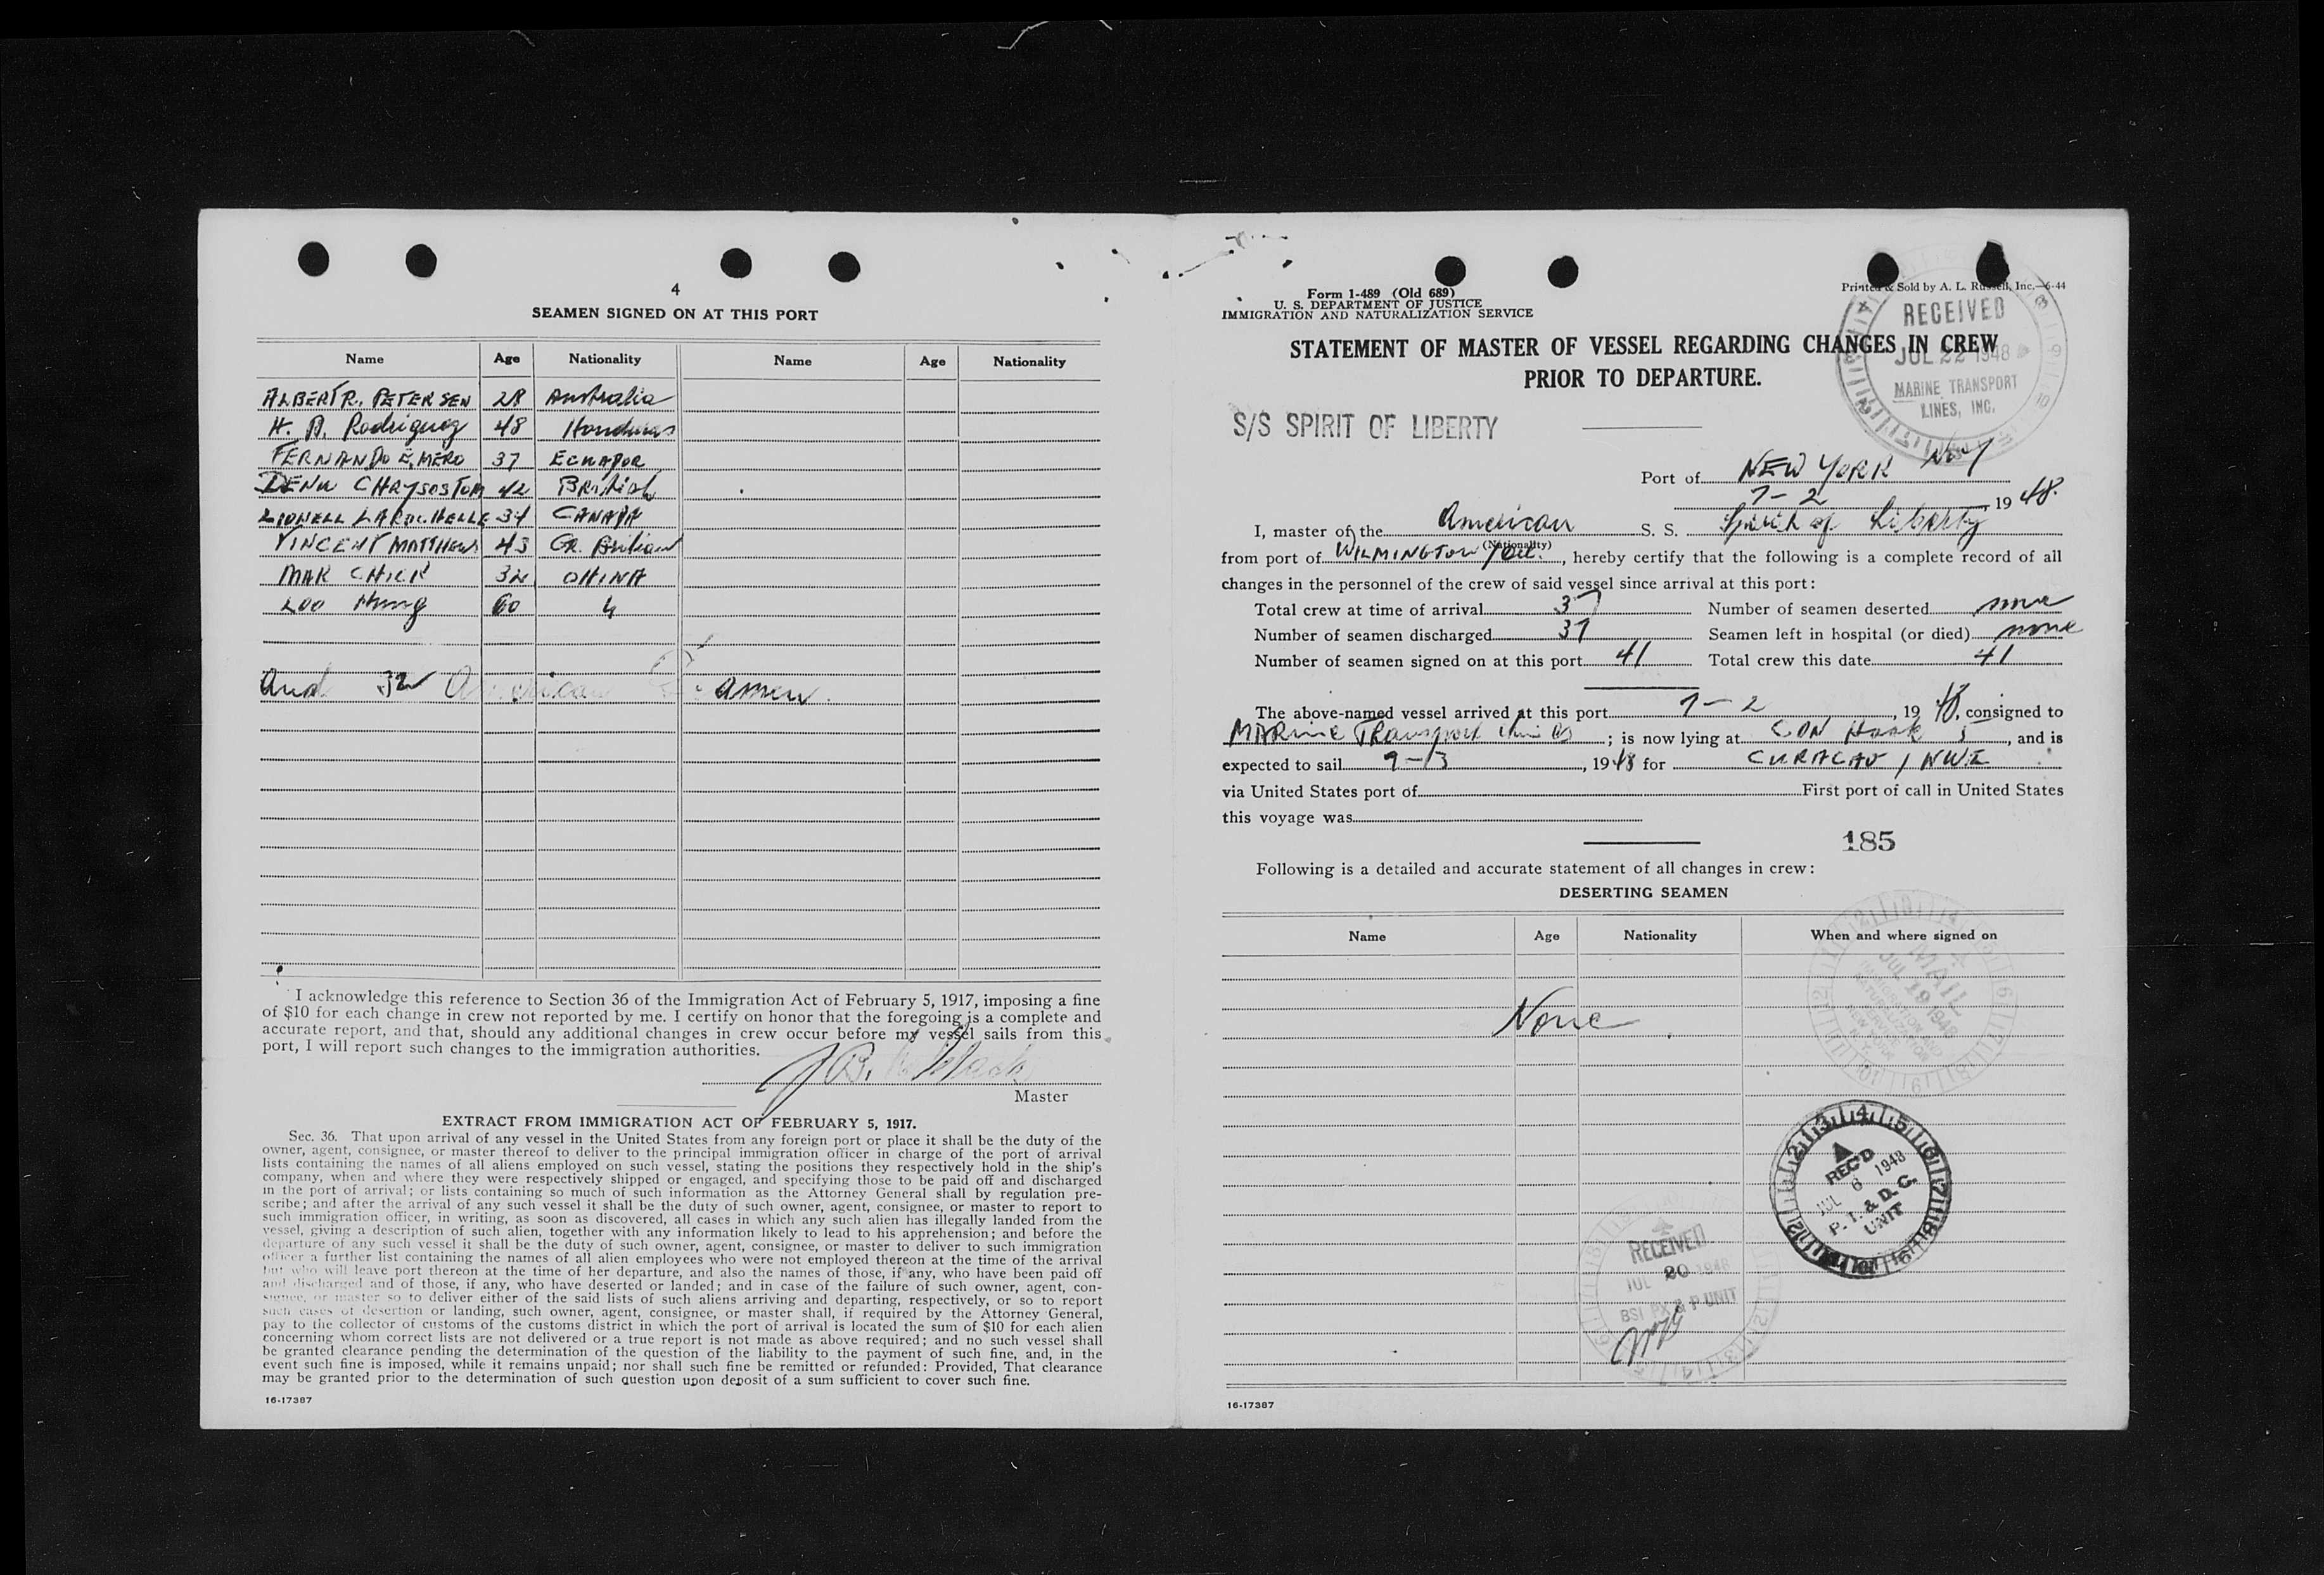 4
SEAMEN SIGNED ON AT THIS PORT
Name Age Nationality Name Age Nationality
ALBERT R. PETERSEN 28 Australia
H. A. Rodriguez 48 Honduras
FERNANDO E. MERO 37 ECUADOR
CHRYSOSTOM 42 British
LIONELL LAROCHELLE 34 CANADA
VINCENT MATTHEWS 43 GR.
MAK CHICK 32 CHINA
LOO 60 "
And 32 American Seamen.
I acknowledge this reference to Section 36 of the Immigration Act of February 5, 1917, imposing a fine
of $10 for each change in crew not reported by me. I certify on honor that the foregoing is a complete and
accurate report, and that, should any additional changes in crew occur before my vessel sails from this
port, I will report such changes to the immigration authorities.
J. B.
Master
EXTRACT FROM IMMIGRATION ACT OF FEBRUARY 5, 1917.
Sec. 36. That upon arrival of any vessel in the United States from any foreign port or place it shall be the duty of the
owner, agent, consignee, or master thereof to deliver to the principal immigration officer in charge of the port of arrival
lists containing the names of all aliens employed on such vessel, stating the positions they respectively hold in the ship's
company, when and where they were respectively shipped or engaged, and specifying those to be paid off and discharged
in the port of arrival; or lists containing so much of such information as the Attorney General shall by regulation pre-
scribe; and after the arrival of any such vessel it shall be the duty of such owner, agent, consignee, or master to report to
such immigration officer, in writing, as soon as discovered, all cases in which any such alien has illegally landed from the
vessel, giving a description of such alien, together with any information likely to lead to his apprehension; and before the
departure of any such vessel it shall be the duty of such owner, agent, consignee, or master to deliver to such immigration
officer a further list containing the names of all alien employees who were not employed thereon at the time of the arrival
but who will leave port thereon at the time of her departure, and also the names of those, if any, who have been paid off
and discharged and of those, if any, who have deserted or landed; and in case of the failure of such owner, agent, con-
signee, or master so to deliver either of the said lists of such aliens arriving and departing, respectively, or so to report
such cases of desertion or landing, such owner, agent, consignee, or master shall, if required by the Attorney General,
pay to the collector of customs of the customs district in which the port of arrival is located the sum of $10 for each alien
concerning whom correct lists are not delivered or a true report is not made as above required; and no such vessel shall
be granted clearance pending the determination of the question of the liability to the payment of such fine, and, in the
event such fine is imposed, while it remains unpaid; nor shall such fine be remitted or refunded: Provided, That clearance
may be granted prior to the determination of such question upon deposit of a sum sufficient to cover such fine.
16-17387
Form 1-489 (Old 689)
U. S. DEPARTMENT OF JUSTICE
IMMIGRATION AND NATURALIZATION SERVICE
Printed & Sold by A. L. Russell, Inc.—6-44
RECEIVED
JUL 22 1948
MARINE TRANSPORT
LINES, INC.
STATEMENT OF MASTER OF VESSEL REGARDING CHANGES IN CREW
PRIOR TO DEPARTURE.
S/S SPIRIT OF LIBERTY
Port of NEW YORK N.Y
7-2 1948.
I, master of the American S. S. Spirit of Liberty
(Nationality)
from port of WILMINGTON / Del., hereby certify that the following is a complete record of all
changes in the personnel of the crew of said vessel since arrival at this port:
Total crew at time of arrival 37 Number of seamen deserted none
Number of seamen discharged 37 Seamen left in hospital (or died) none
Number of seamen signed on at this port 41 Total crew this date 41
The above-named vessel arrived at this port 7-2, 1948, consigned to
MARINE Transport; is now lying at, and is
expected to sail, 1948 for CURACAO / NWI
via United States port of First port of call in United States
this voyage was
185
Following is a detailed and accurate statement of all changes in crew:
DESERTING SEAMEN
Name Age Nationality When and where signed on
MAIL
JUL 19 1948
IMMIGRATION AND
NATURALIZATION
SERVICE
NEW YORK
None
REC'D
JUL 6 1948
P. I. & D. C.
UNIT
RECEIVED
JUL 20 1948
BSI PX & P UNIT
16-17387